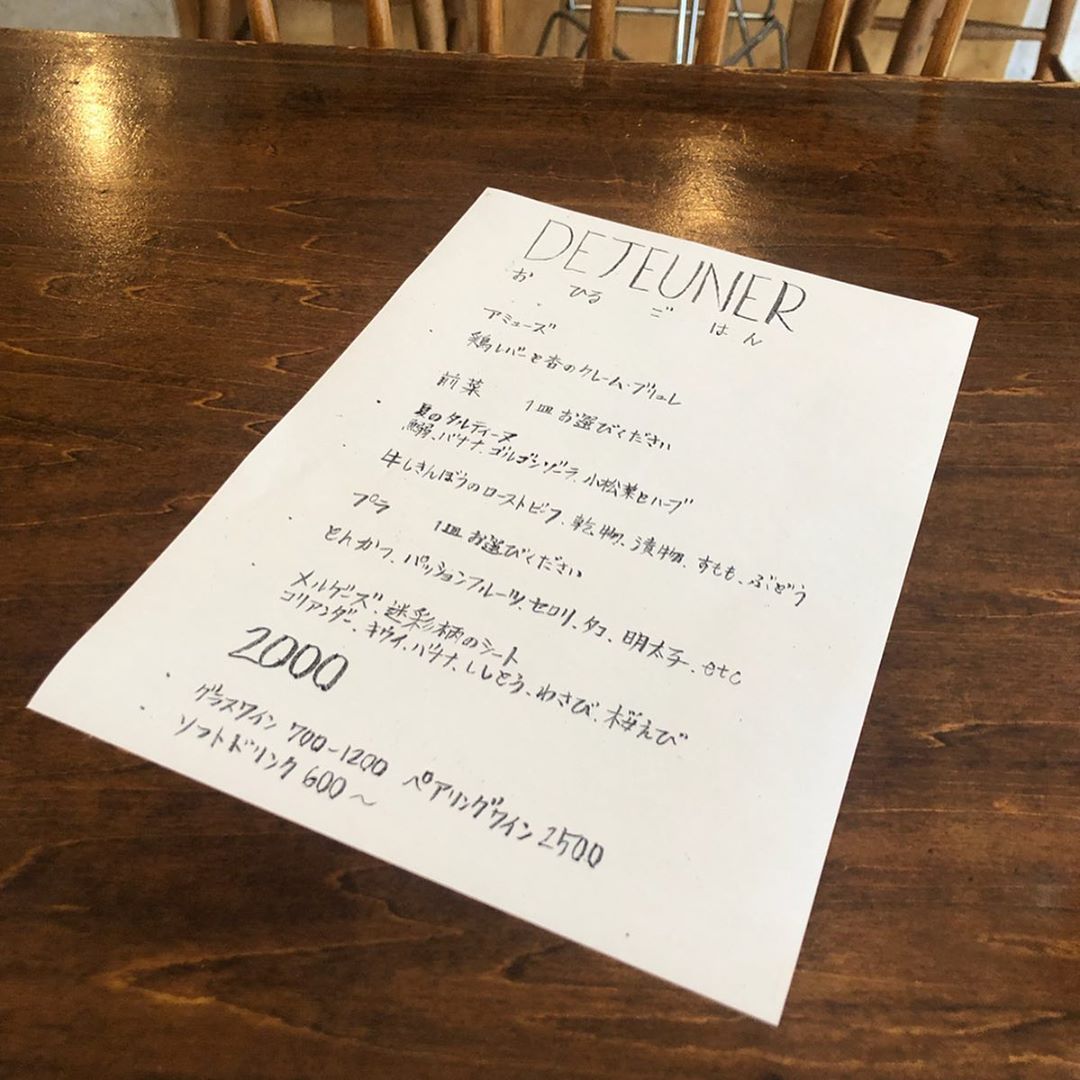 DEJEUNER
おひるごはん
アミューズ
鶏レバーと杏のクレーム・ブリュレ
前菜 1皿お選びください
夏のタルティーヌ
鰯、バナナ、ゴルゴンゾーラ、小松菜とハーブ
牛しきんぼうのローストビーフ、乾物、漬物、すもも、ぶどう
プラ 1皿お選びください
とんかつ、パッションフルーツ、セロリ、タコ、明太子、etc
メルゲーズ、迷彩柄のシート
コリアンダー、キウイ、バナナ、ししとう、わさび、桜えび
2000
グラスワイン 700-1200 ペアリングワイン 2500
ソフトドリンク 600〜